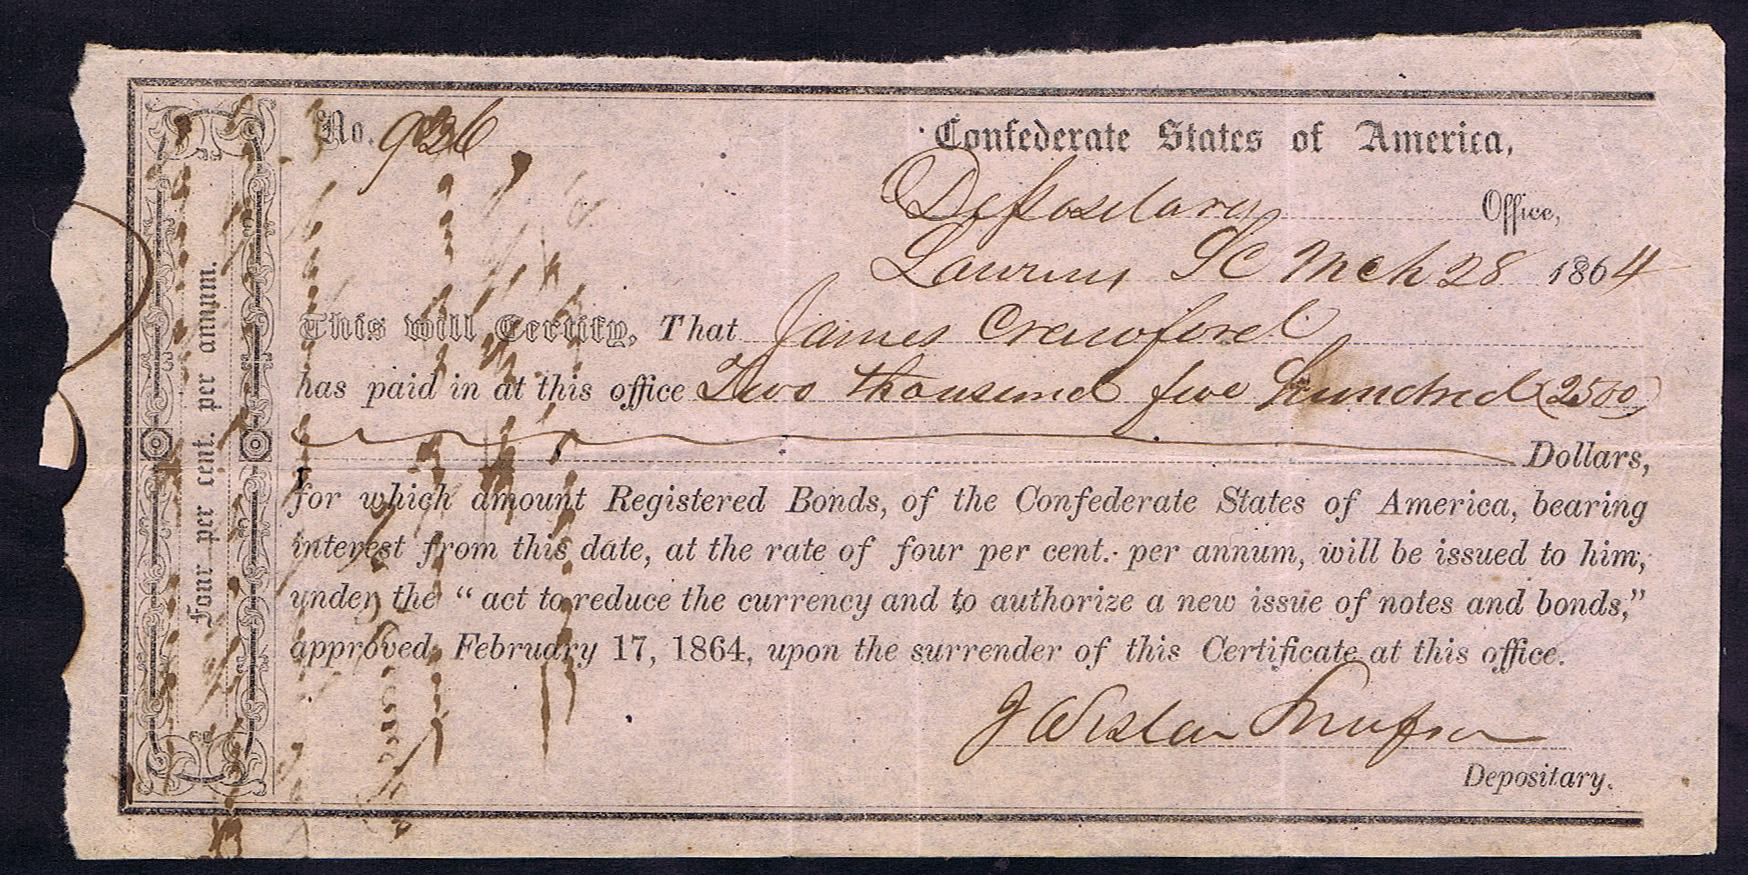 No. 926
Confederate States of America,
Depositary Office,
Laurens SC Mch 28 1864
This will Certify, That James Crawford
has paid in at this office Two thousand five hundred (2500)
Dollars,
for which amount Registered Bonds, of the Confederate States of America, bearing
interest from this date, at the rate of four per cent. per annum, will be issued to him,
under the “act to reduce the currency and to authorize a new issue of notes and bonds,”
approved February 17, 1864, upon the surrender of this Certificate at this office.
J Wistar
Depositary.
Four per cent. per annum.